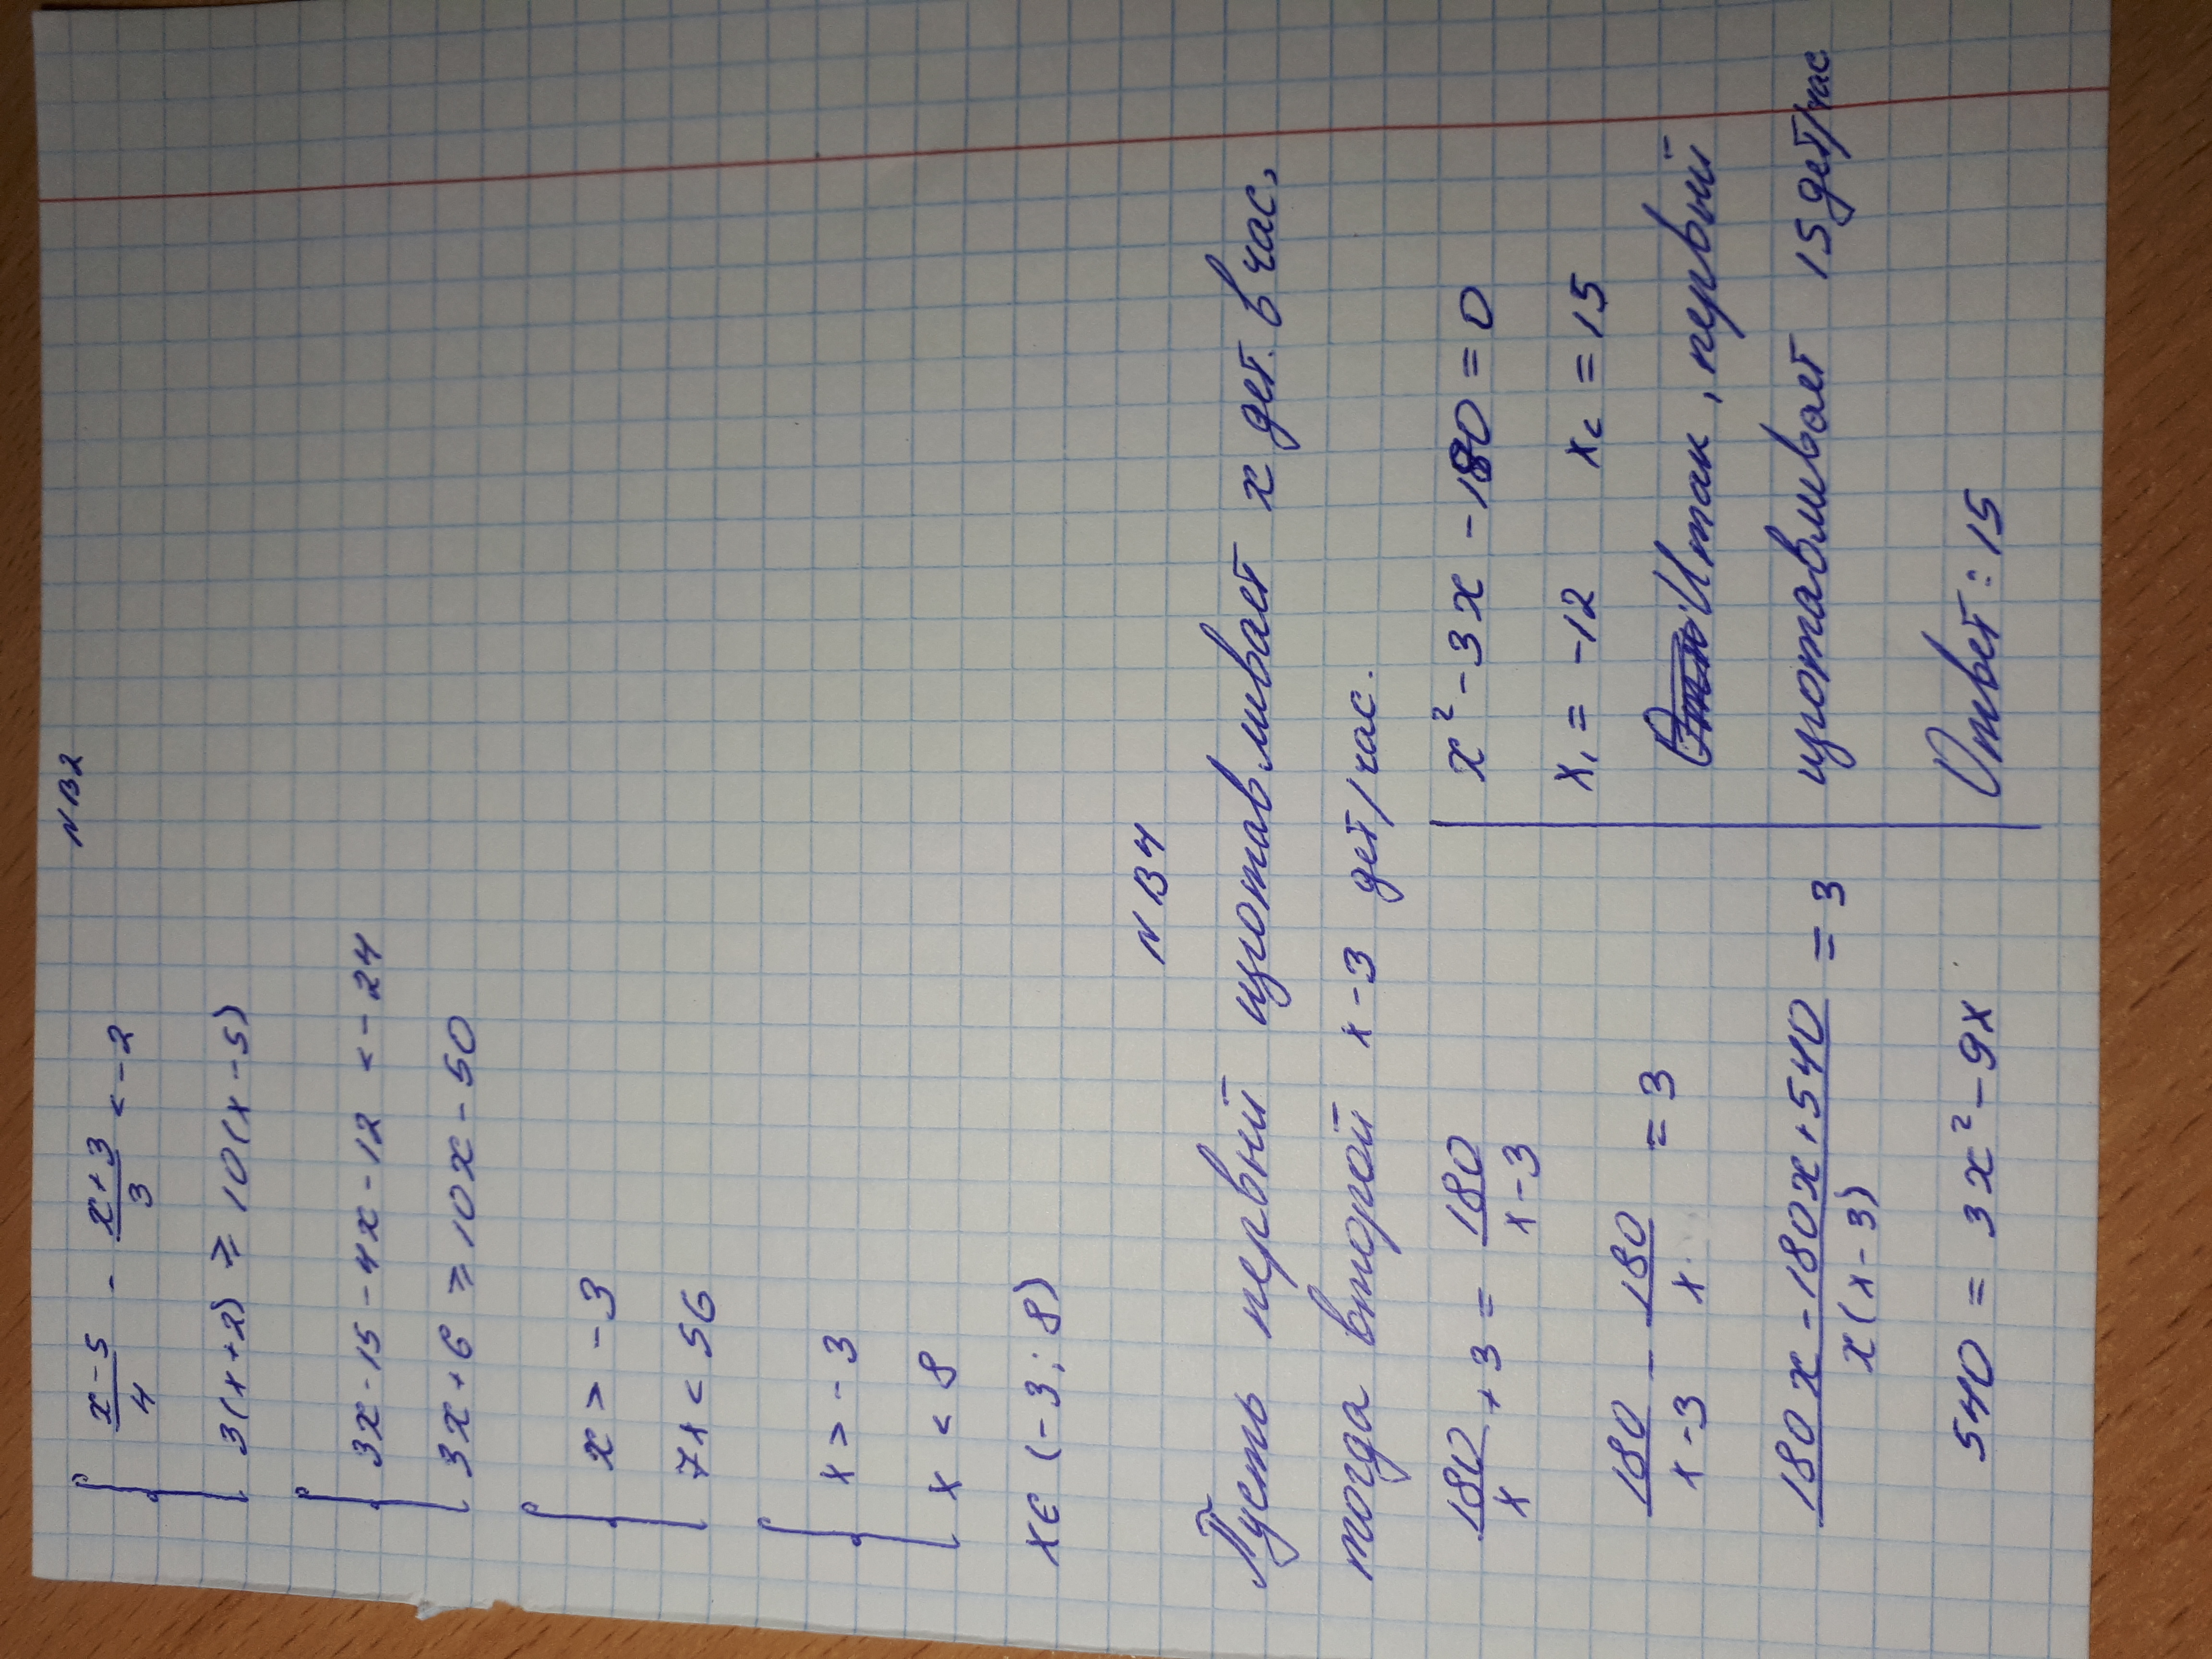 N B2
{ (x-5)/4 - (x+3)/3 < -2
3(x+2) ⩾ 10(x-5)
{ 3x-15-4x-12 < -24
3x+6 ⩾ 10x-50
{ x > -3
7x < 56
{ x > -3
x < 8
x∈ (-3; 8)
N B4
Пусть первый изготавливает x дет. в час,
тогда второй x-3 дет/час.
180/x + 3 = 180/(x-3)
180/(x-3) - 180/x = 3
(180x-180x+540)/(x(x-3)) = 3
540 = 3x²-9x
x²-3x-180=0
x₁ = -12 x₂ = 15
Итак, первый
изготавливает 15 дет/час
Ответ: 15